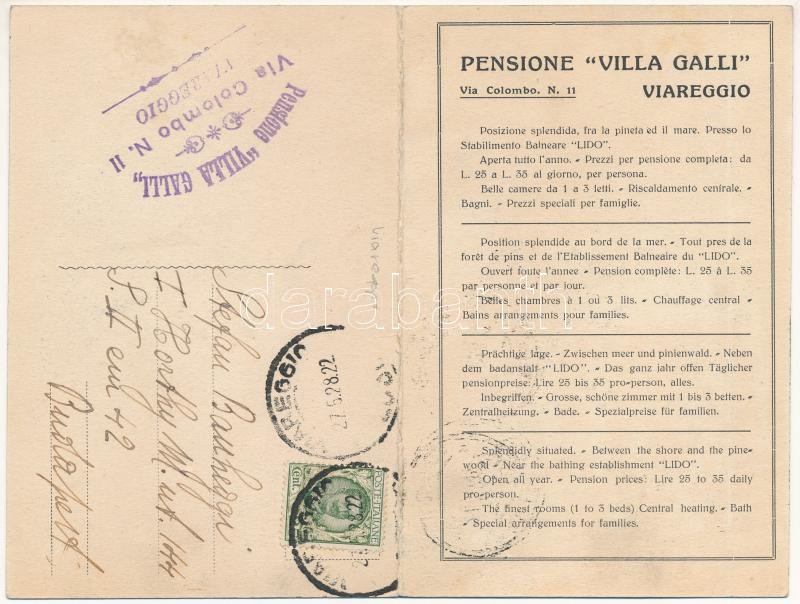 Pensione "VILLA GALLI"
Via Colombo N. 11
VIAREGGIO
Viareggio
I Horthy M. ut. 144
Budapest
VIAREGGIO
POSTE ITALIANE
Cent.
VIAREGGIO
darabanth
PENSIONE "VILLA GALLI"
Via Colombo. N. 11 VIAREGGIO
Posizione splendida, fra la pineta ed il mare. Presso lo
Stabilimento Balneare "LIDO".
Aperta tutto l'anno. - Prezzi per pensione completa: da
L. 25 a L. 35 al giorno, per persona.
Belle camere da 1 a 3 letti. - Riscaldamento centrale. -
Bagni. - Prezzi speciali per famiglie.
Position splendide au bord de la mer. - Tout pres de la
forêt de pins et de l'Etablissement Balneaire du "LIDO".
Ouvert toute l'annee - Pension complète: L. 25 à L. 35
par personne et par jour.
Belles chambres à 1 ou 3 lits. - Chauffage central -
Bains arrangements pour families.
Prächtige lage. - Zwischen meer und pinienwald. - Neben
dem badanstalt "LIDO". - Das ganz jahr offen Täglicher
pensionpreise: Lire 25 bis 35 pro-person, alles.
Inbegriffen. - Grosse, schöne zimmer mit 1 bis 3 betten. -
Zentralheitzung. - Bade. - Spezialpreise für familien.
Splendidly situated. - Between the shore and the pine-
wood - Near the bathing establishment "LIDO".
Open all year. - Pension prices: Lire 25 to 35 daily
pro-person.
The finest rooms (1 to 3 beds) Central heating. - Bath
Special arrangements for families.